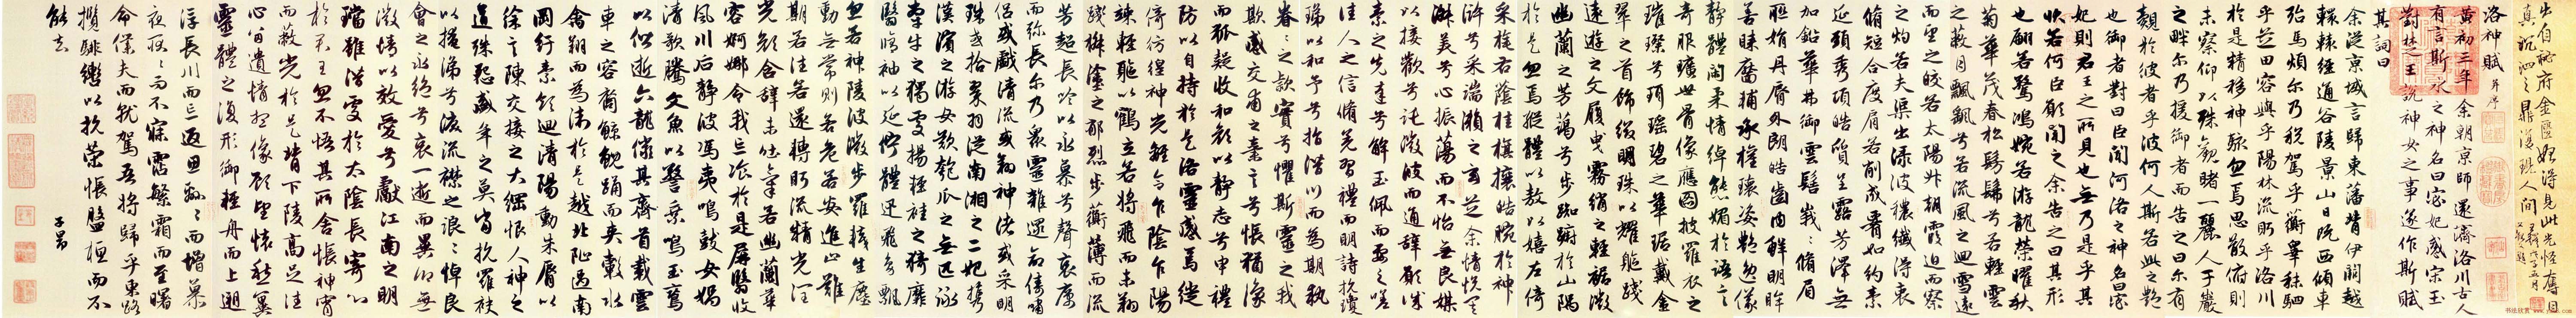 出自秘府金匱始得見此光怪奪目
真沉泗之鼎復現人間
洛神賦 并序
黃初三年余朝京師還濟洛川古人
有言斯水之神名曰宓妃感宋玉
對楚王說神女之事遂作斯賦
其詞曰
余從京域言歸東藩背伊闕越
轘轅經通谷陵景山日既西傾車
殆馬煩尔乃稅駕乎蘅皋秣駟
乎芝田容與乎陽林流眄乎洛川
於是精移神駭忽焉思散俯則
未察仰以殊觀睹一麗人于巖
之畔尔乃援御者而告之曰尔有
覿於彼者乎彼何人斯若此之艷
也御者對曰臣聞河洛之神名曰宓
妃則君王之所見也無乃是乎其
狀若何臣願聞之余告之曰其形
也翩若驚鴻婉若游龍榮曜秋
菊華茂春松髣髴兮若輕雲
之蔽月飄飄兮若流風之迴雪遠
而望之皎若太陽升朝霞迫而察
之灼若夫渠出淥波穠纖得衷
脩短合度肩若削成署如約素
延頸秀項皓質呈露芳澤無
加鉛華弗御雲髻峩〻脩眉
聯娟丹脣外朗皓齒內鮮明眸
善睞靨輔承權瓌姿艷逸儀
靜體閑柔情綽態媚於語言
奇服曠世骨像應圖披羅衣之
璀璨兮珥瑤碧之華琚戴金
翠之首飾綴明珠以耀軀踐
遠遊之文履曳霧綃之輕裾微
幽蘭之芳藹兮步踟躕於山隅
於是忽焉縱體以敖以嬉左倚
采旄右蔭桂旗攘皓腕於神
滸兮采湍瀨之玄芝余情悅其
淑美兮心振蕩而不怡無良媒
以接歡兮託微波而通辭願誠
素之先達兮解玉佩而要之嗟
佳人之信脩羌習禮而明詩抗瓊
珶以和予兮指潛川而為期執
眷〻之款實兮懼斯靈之我
欺感交甫之棄言兮悵猶豫
而狐疑收和顏以靜志兮申禮
防以自持於是洛靈感焉徙
倚彷徨神光離合乍陰乍陽
竦輕軀以鶴立若將飛而未翔
踐椒塗之郁烈步蘅薄而流
芳超長吟以永慕兮聲哀厲
而弥長尔乃眾靈雜遝命儔嘯
侶或戲清流或翔神渚或采明
珠或拾翠羽從南湘之二妃攜
漢濱之游女歎匏瓜之無匹詠
牽牛之獨處揚輕袿之猗靡
翳脩袖以延佇體迅飛鳧飄
忽若神陵波微步羅韈生塵
動無常則若危若安進止難
期若往若還轉眄流精光潤
玉顏含辭未吐氣若幽蘭華
容婀娜令我忘飡於是屏翳收
風川后靜波馮夷鳴鼓女媧
清歌騰文魚以警乘鳴玉鸞
以偕逝六龍儼其齊首載雲
車之容裔鯨鯢踊而夾轂水
禽翔而為衛於是越北沚過南
岡紆素領迴清陽動朱脣以
徐言陳交接之大綱恨人神之
道殊怨盛年之莫當抗羅袂
以掩涕兮淚流襟之浪〻悼良
會之永絕兮哀一逝而異鄉無
微情以效愛兮獻江南之明
璫雖潛處於太陰長寄心
於君王忽不悟其所舍悵神宵
而蔽光於是背下陵高足往
心留遺情想像顧望懷愁冀
靈體之復形御輕舟而上遡
浮長川而忘返思綿〻而增慕
夜耿〻而不寐霑繁霜而至曙
命僕夫而就駕吾將歸乎東路
攬騑轡以抗策悵盤桓而不
能去
子昂